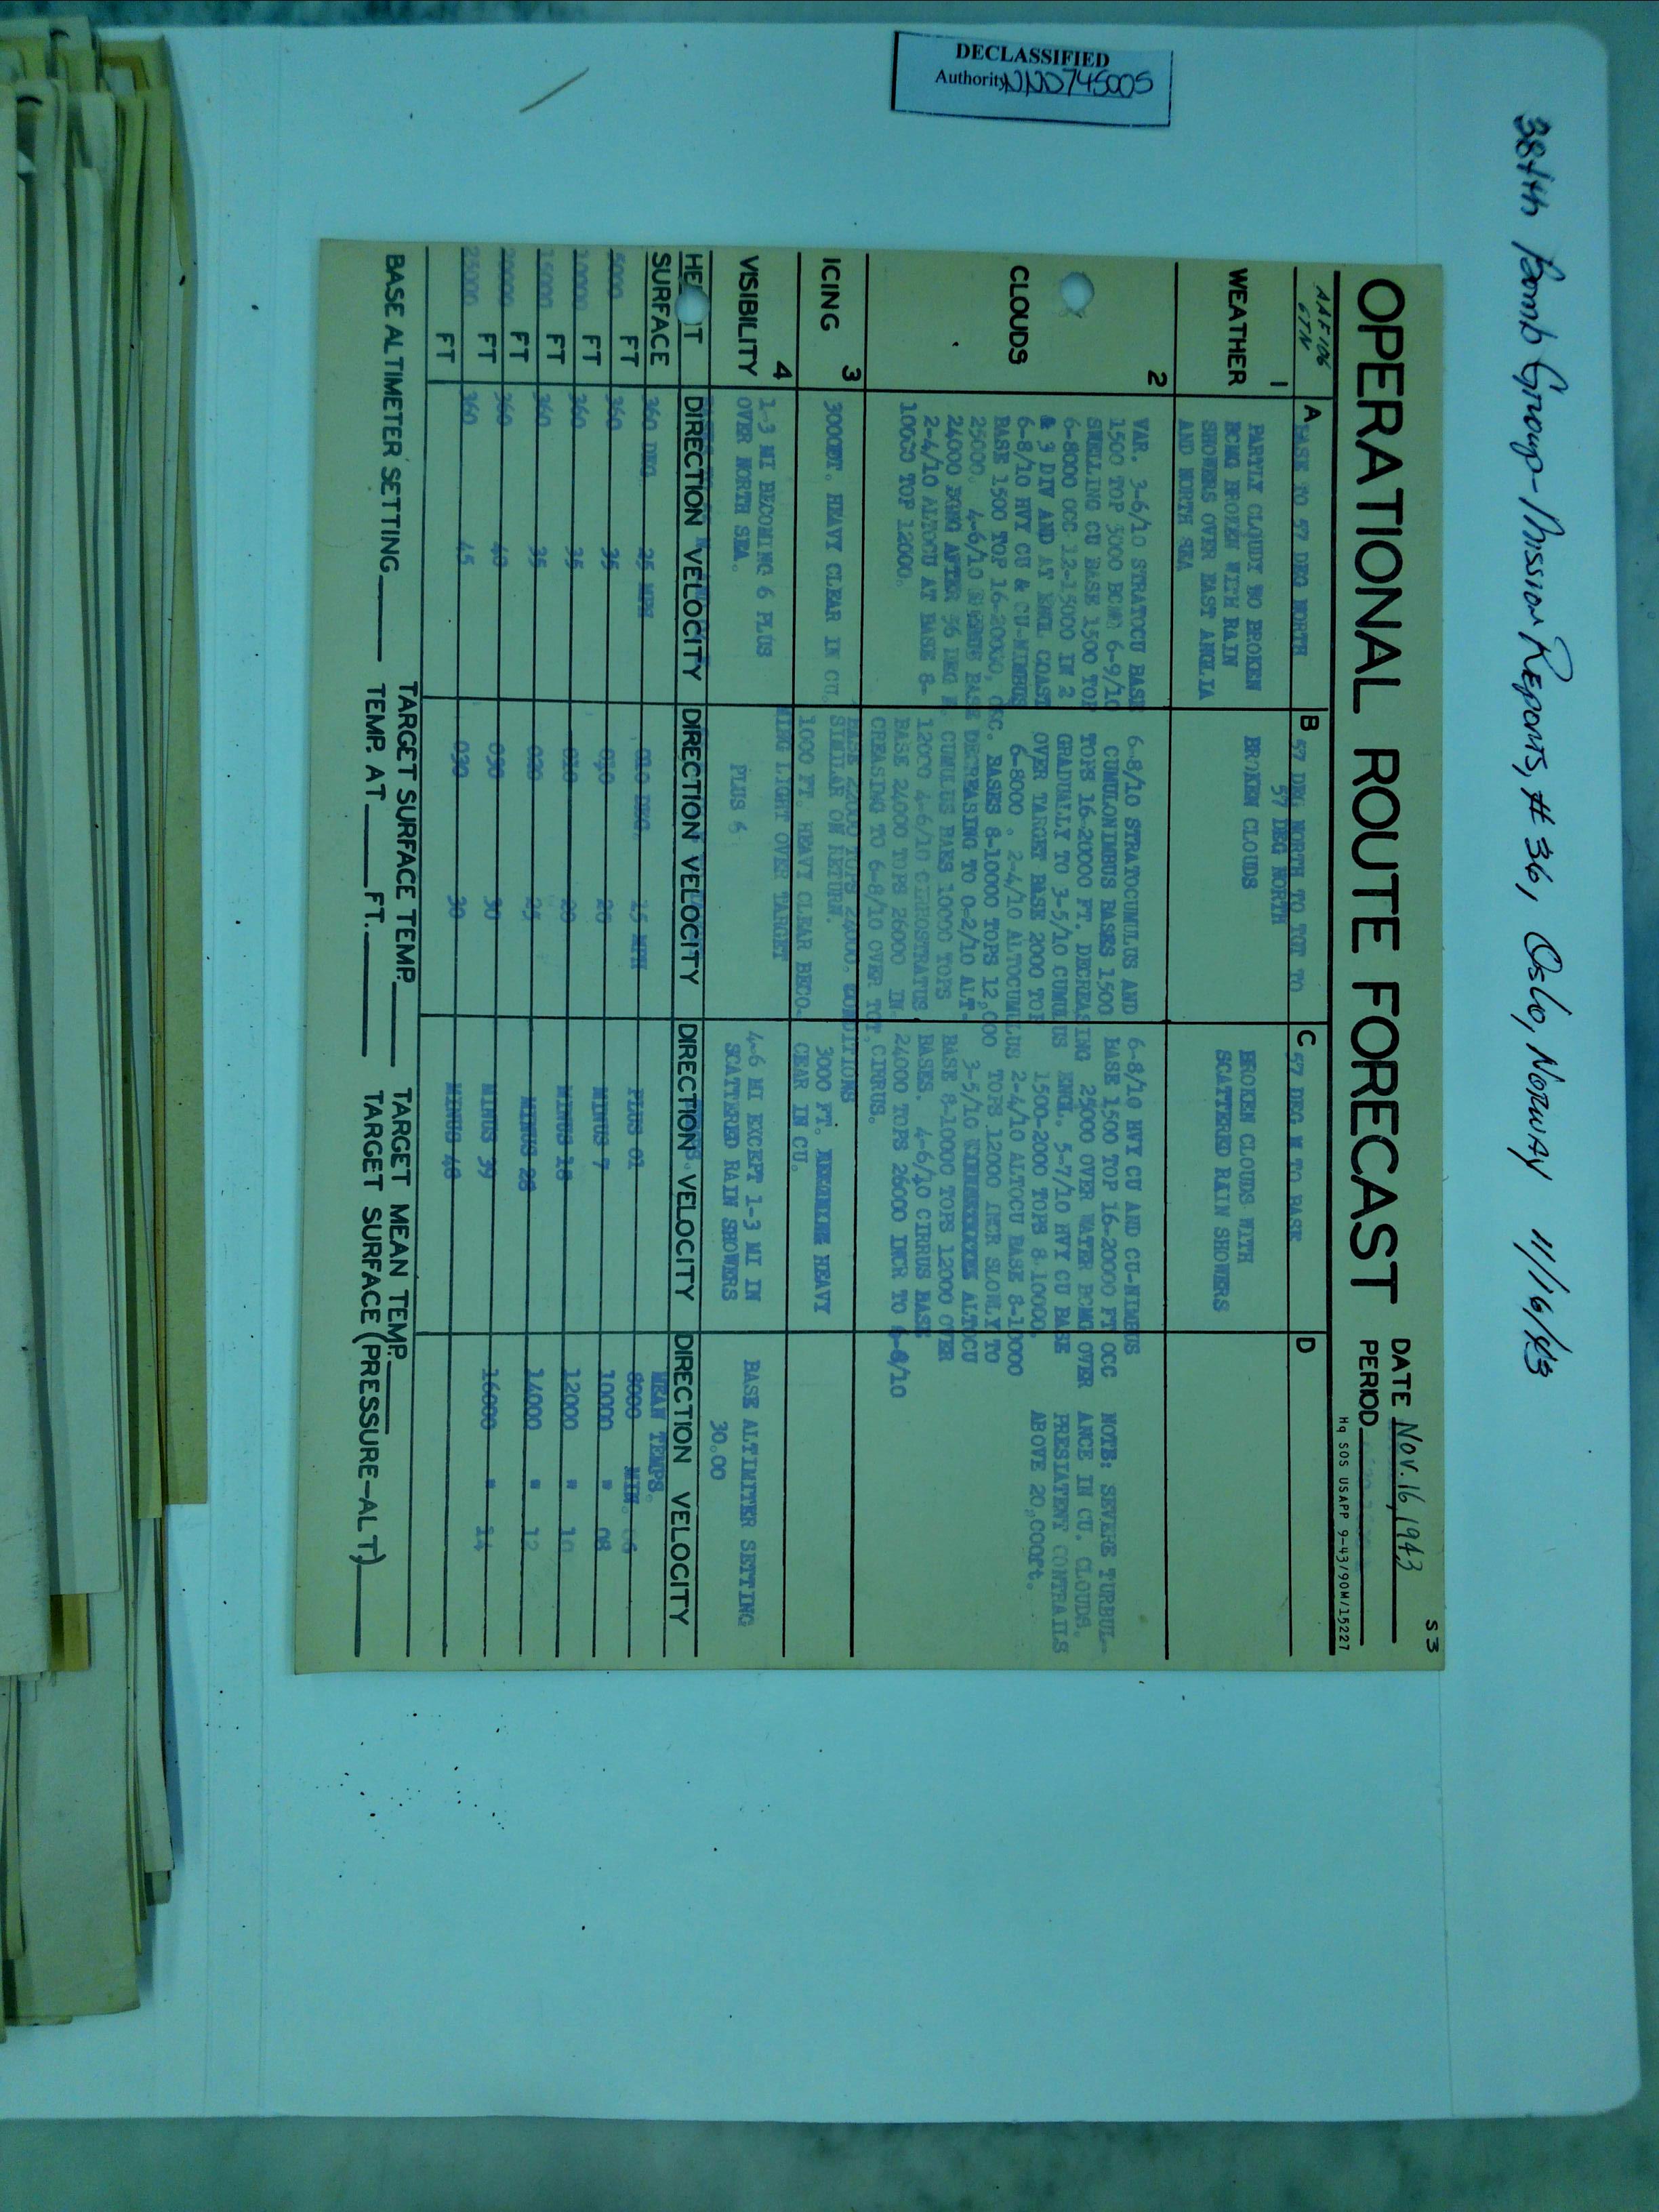 DECLASSIFIED
Authority NND745005
384th Bomb Group - Mission Reports, # 36, Oslo, Norway 11/16/43
S3
OPERATIONAL ROUTE FORECAST
DATE Nov. 16, 1943
PERIOD
Hq SOS USAPP 9-43/90M/15227
AAF 106
6TN
A BASE TO 57 DEG NORTH
B 57 DEG NORTH TO TGT TO
57 DEG NORTH
C 57 DEG N TO BASE
D
1
WEATHER
PARTLY CLOUDY TO BROKEN
BCMG BROKEN WITH RAIN
SHOWERS OVER EAST ANGLIA
AND NORTH SEA
BROKEN CLOUDS
BROKEN CLOUDS WITH
SCATTERED RAIN SHOWERS
2
CLOUDS
VAR. 3-6/10 STRATOCU BASE
1500 TOP 3000 BCMG 6-9/10
SWELLING CU BASE 1500 TOP
6-8000 OCC 12-15000 IN 2
& 3 DIV AND AT ENGL COAST
6-8/10 HVY CU & CU-NIMBUS
BASE 1500 TOP 16-20000, OCC.
25000. 4-6/10 BASE
24000 BGNG AFTER 56 DEG N.
2-4/10 ALTOCU AT BASE 8-
10000 TOP 12000.
6-8/10 STRATOCUMULUS AND
CUMULONIMBUS BASES 1500
TOPS 16-20000 FT. DECREASING
GRADUALLY TO 3-5/10 CUMULUS
OVER TARGET BASE 2000 TOP
6-8000. 2-4/10 ALTOCUMULUS
BASES 8-10000 TOPS 12,000
DECREASING TO 0-2/10 ALT-
CUMULUS BAES 10000 TOPS
12000 4-6/10 CIRROSTRATUS
BASE 24000 TOPS 26000 IN
CREASING TO 6-8/10 OVER TGT, CIRRUS.
BASE 22000 TOPS 24000. CONDITIONS
SIMILAR ON RETURN.
6-8/10 HVY CU AND CU-NIMBUS
BASE 1500 TOP 16-20000 FT OCC
25000 OVER WATER BCMG OVER
ENGL. 5-7/10 HVY CU BASE
1500-2000 TOPS 8-10000.
2-4/10 ALTOCU BASE 8-10000
TOPS 12000 INCR SLOWLY TO
3-5/10 ALTOCU
BASE 8-10000 TOPS 12000 OVER
BASES. 4-6/10 CIRRUS BASE
24000 TOPS 26000 INCR TO 6-8/10
NOTE: SEVERE TURBUL-
ANCE IN CU. CLOUDS.
PRESISTENT CONTRAILS
ABOVE 20,000ft.
3
ICING
3000FT. HEAVY CLEAR IN CU.
1000 FT. HEAVY CLEAR BECO-
MING LIGHT OVER TARGET
3000 FT. HEAVY
CEAR IN CU.
4
VISIBILITY
1-3 MI BECOMING 6 PLUS
OVER NORTH SEA.
PLUS 6
4-6 MI EXCEPT 1-3 MI IN
SCATTERED RAIN SHOWERS
BASE ALTIMITER SETTING
30.00
DIRECTION VELOCITY DIRECTION VELOCITY DIRECTION VELOCITY DIRECTION VELOCITY
MEAN TEMPS.
SURFACE 360 DEG. 25 MPH 010 DEG. 15 MPH PLUS 01 8000 MIN. 06
5000 FT 360 35 20 MINUS 7 10000 " 08
10000 FT 360 35 20 MINUS 18 12000 " 10
15000 FT 360 35 25 MINUS 28 14000 " 12
20000 FT 360 40 030 30 MINUS 39 16000 " 14
25000 FT 360 45 030 30 MINUS 48
FT
BASE ALTIMETER SETTING TARGET SURFACE TEMP. TARGET MEAN TEMP.
TEMP. AT FT. TARGET SURFACE (PRESSURE-ALT)